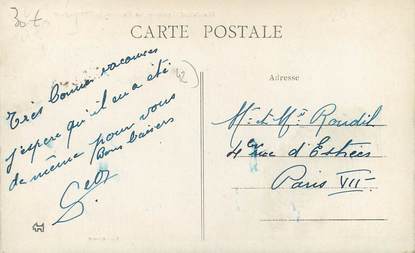 30t
CARTE POSTALE
42
Très bonnes vacances
j'espère qu'il en a été
de même pour vous
Bons baisers
Adresse
Mr et Mme Raudil
4 rue d'Estrées
Paris VII